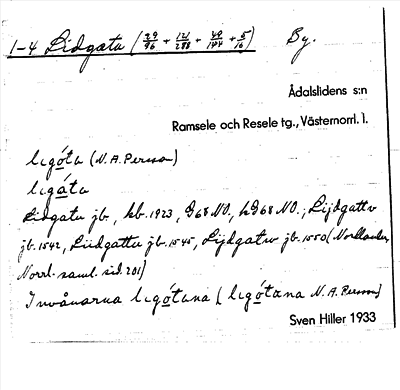 1-4 Lidgatu (29/96 + 121/288 + 40/144 + 5/16) By.
Ådalslidens s:n
Ramsele och Resele tg., Västernorrl. l.
ligóta (N.A. Persson)
ligáta
Lidgatu jb, kb. 1923, G68NO., LG68NO.; Lijdgattv
jb. 1542, Liidgattu jb. 1545, Lijdgatu jb. 1550 (Nordlander,
Norrl. saml. sid. 201)
Invånarna ligótana (ligótana N.A. Persson)
Sven Hiller 1933